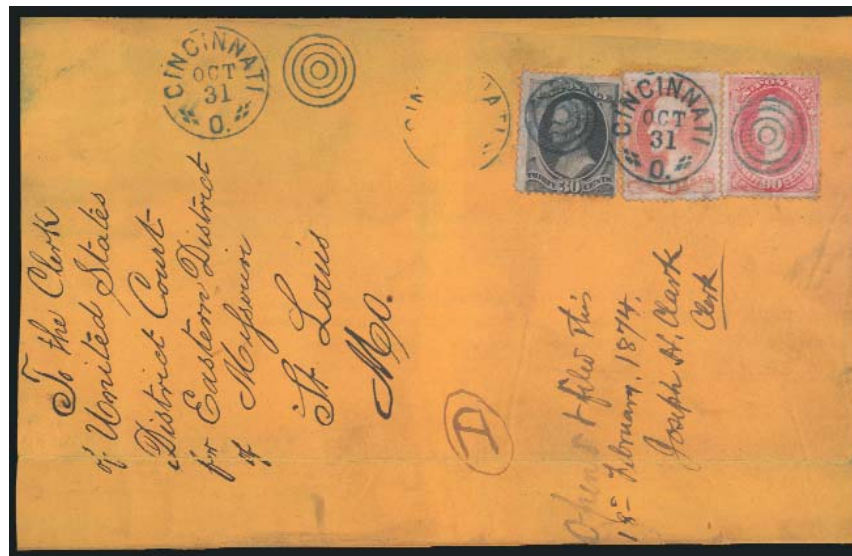 CINCINNATI
OCT
31
O.
CIN
NATI
30
CENTS
CINCINNATI
OCT
31
O.
90 CENTS
To the Clerk
of United States
District Court
for Eastern District
of Missouri
St Louis
Mo.
D
Opened & filed this
18 - February, 1874.
Joseph H. Clark
Clerk